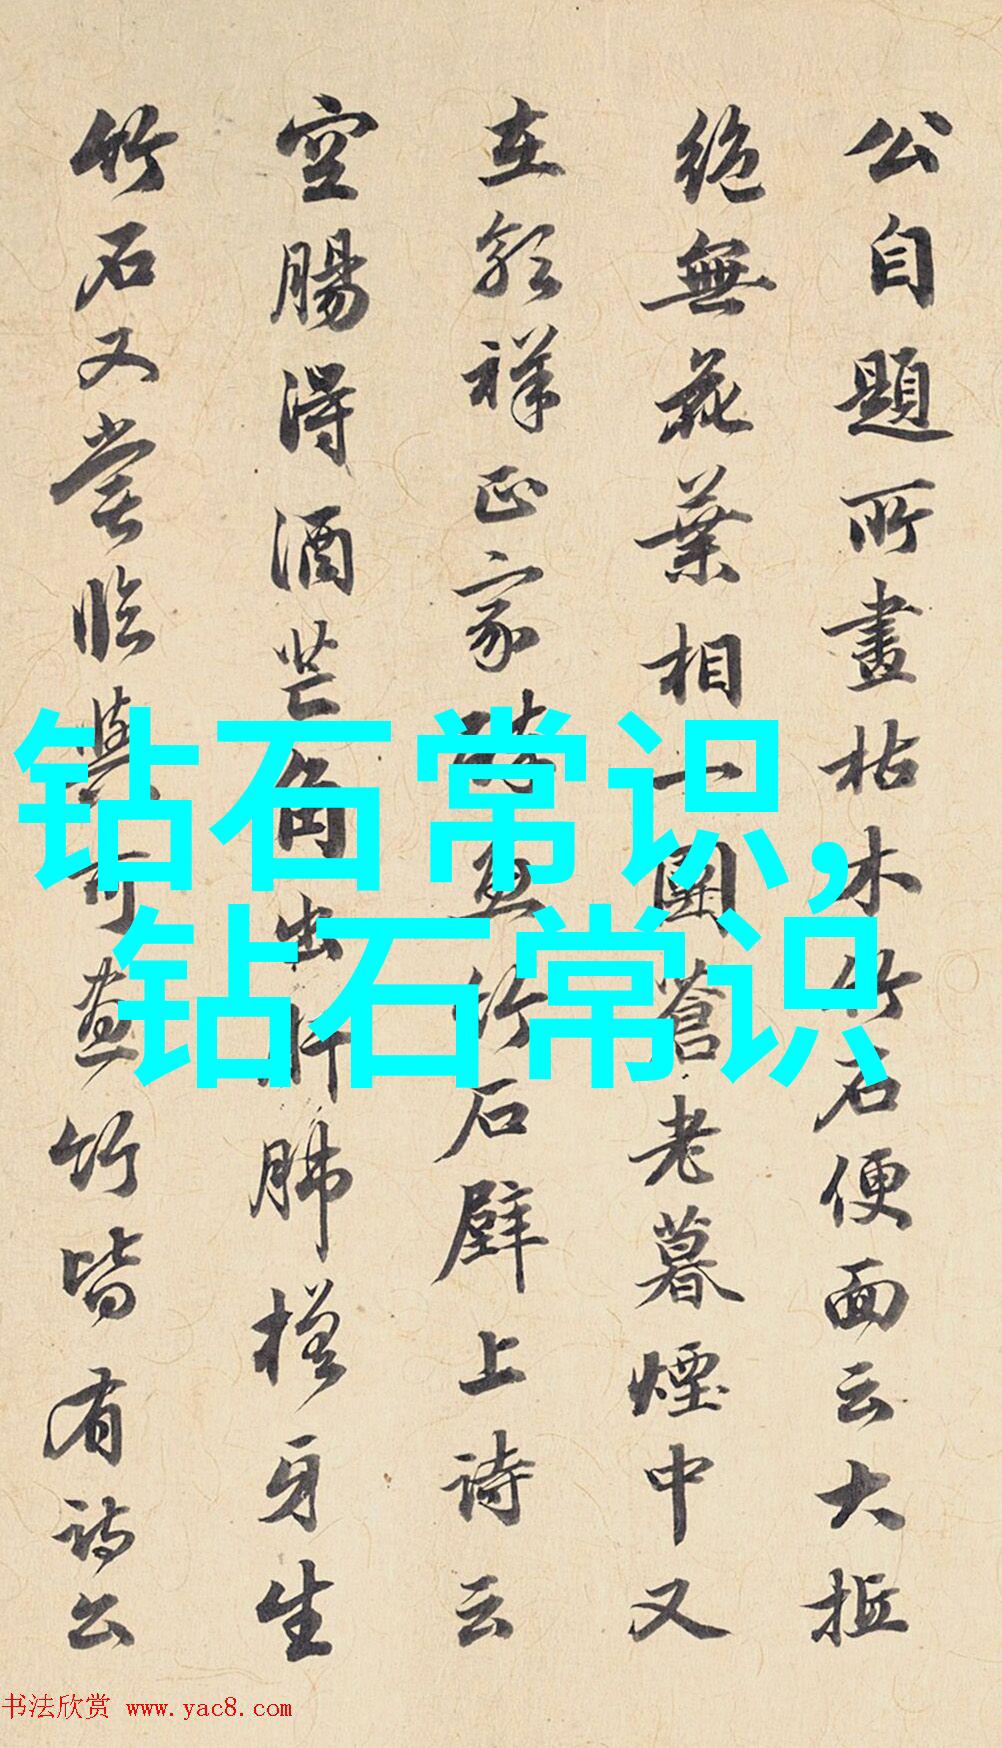 公自題所畫枯木竹石便面云大抵
絶無花葉相一團蒼老暮煙中又
在郭祥正家醉畫竹石壁上詩云
空腸得酒芒角出肝肺槎牙生
竹石又嘗臨與可畫竹皆有詩公
钻石常识,
钻石常识
书法欣赏 www.yac8.com